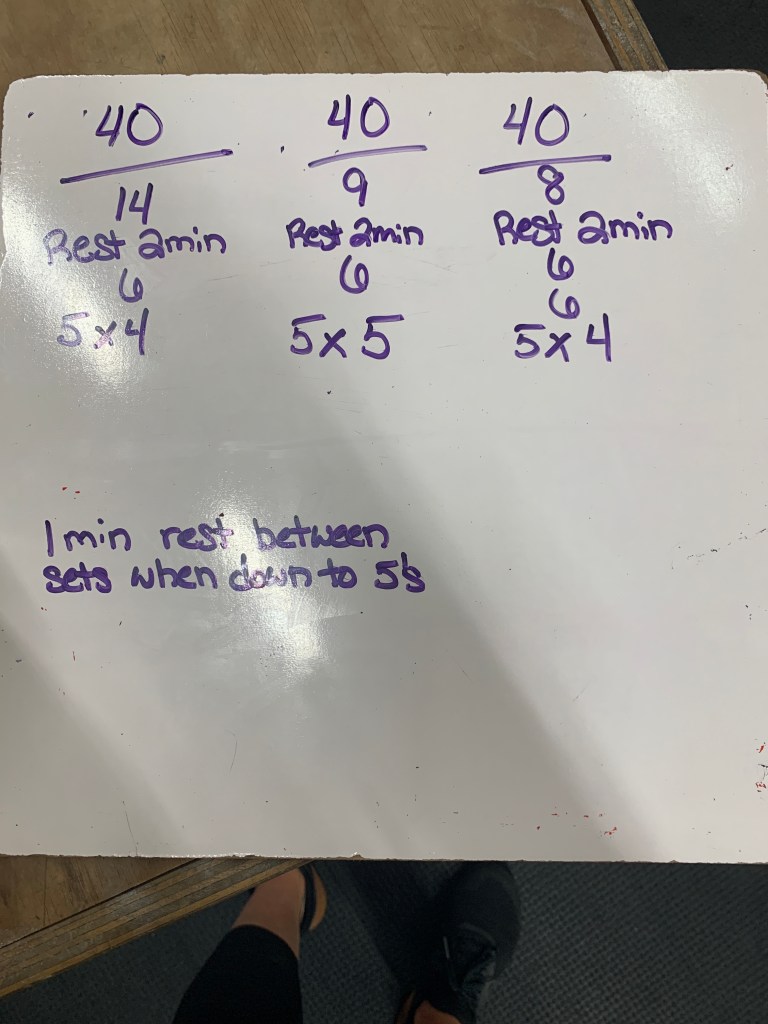 40
14
Rest 2min
6
5x4
40
9
Rest 2min
6
5x5
40
8
Rest 2min
6
6
5x4
1 min rest between
sets when down to 5's